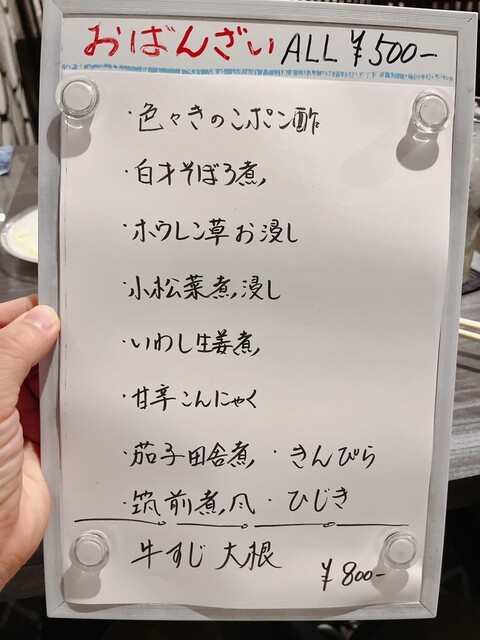 おばんざい ALL ¥500-
・色々きのこポン酢
・白才そぼろ煮
・ホウレン草お浸し
・小松菜煮浸し
・いわし生姜煮
・甘辛こんにゃく
・茄子田舎煮 ・きんぴら
・筑前煮風 ・ひじき
牛すじ大根
¥800-